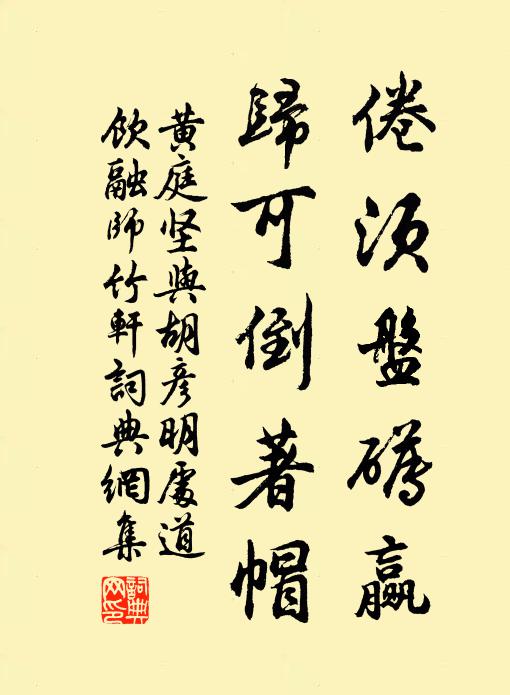 倦須盤礴贏
歸可倒著帽
黃庭堅與胡彥明處道
飲融師竹軒詞典網集